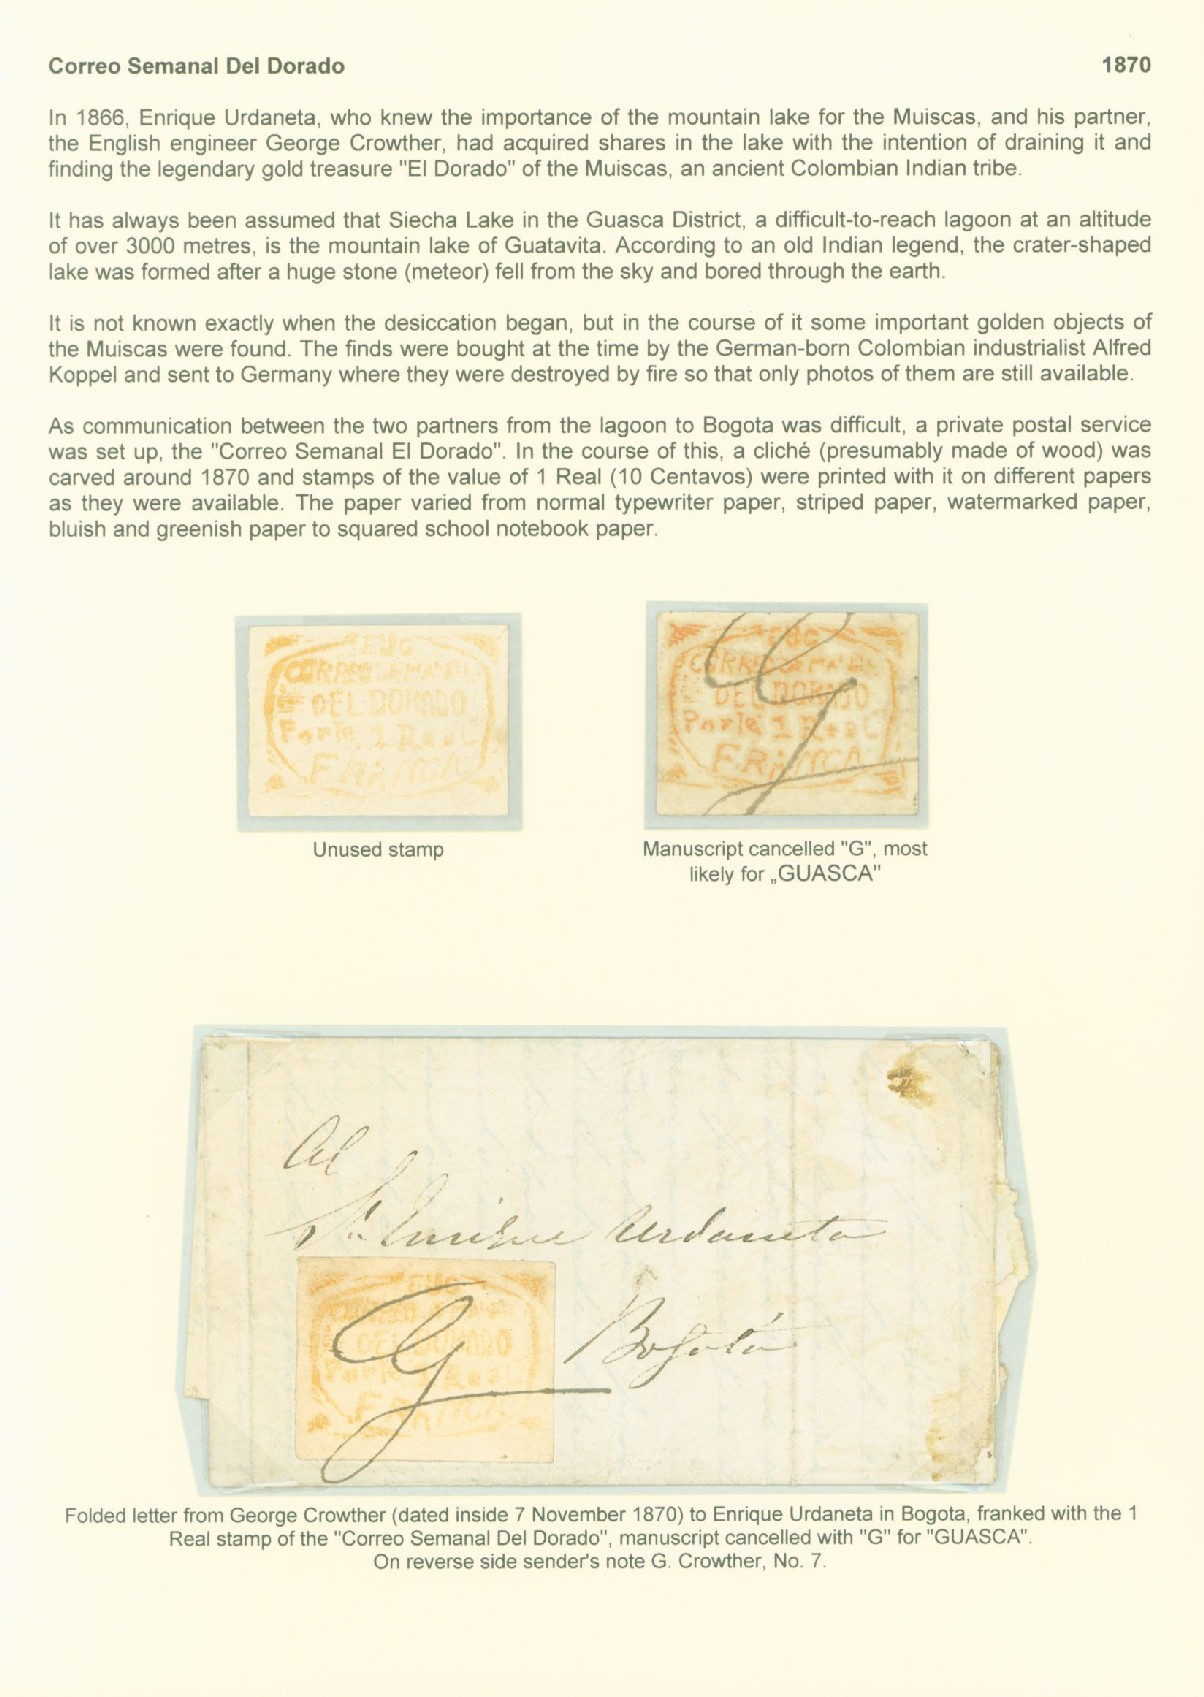 Correo Semanal Del Dorado 1870
In 1866, Enrique Urdaneta, who knew the importance of the mountain lake for the Muiscas, and his partner,
the English engineer George Crowther, had acquired shares in the lake with the intention of draining it and
finding the legendary gold treasure "El Dorado" of the Muiscas, an ancient Colombian Indian tribe.
It has always been assumed that Siecha Lake in the Guasca District, a difficult-to-reach lagoon at an altitude
of over 3000 metres, is the mountain lake of Guatavita. According to an old Indian legend, the crater-shaped
lake was formed after a huge stone (meteor) fell from the sky and bored through the earth.
It is not known exactly when the desiccation began, but in the course of it some important golden objects of
the Muiscas were found. The finds were bought at the time by the German-born Colombian industrialist Alfred
Koppel and sent to Germany where they were destroyed by fire so that only photos of them are still available.
As communication between the two partners from the lagoon to Bogota was difficult, a private postal service
was set up, the "Correo Semanal El Dorado". In the course of this, a cliché (presumably made of wood) was
carved around 1870 and stamps of the value of 1 Real (10 Centavos) were printed with it on different papers
as they were available. The paper varied from normal typewriter paper, striped paper, watermarked paper,
bluish and greenish paper to squared school notebook paper.
DEL DORADO
Porte 1 Real
FRANCA
Unused stamp
DEL DORADO
Porte 1 Real
FRANCA
G
Manuscript cancelled "G", most
likely for „GUASCA"
Al
Sr. Enrique Urdaneta
Bogotá
G
FRANCA
Folded letter from George Crowther (dated inside 7 November 1870) to Enrique Urdaneta in Bogota, franked with the 1
Real stamp of the "Correo Semanal Del Dorado", manuscript cancelled with "G" for "GUASCA".
On reverse side sender's note G. Crowther, No. 7.